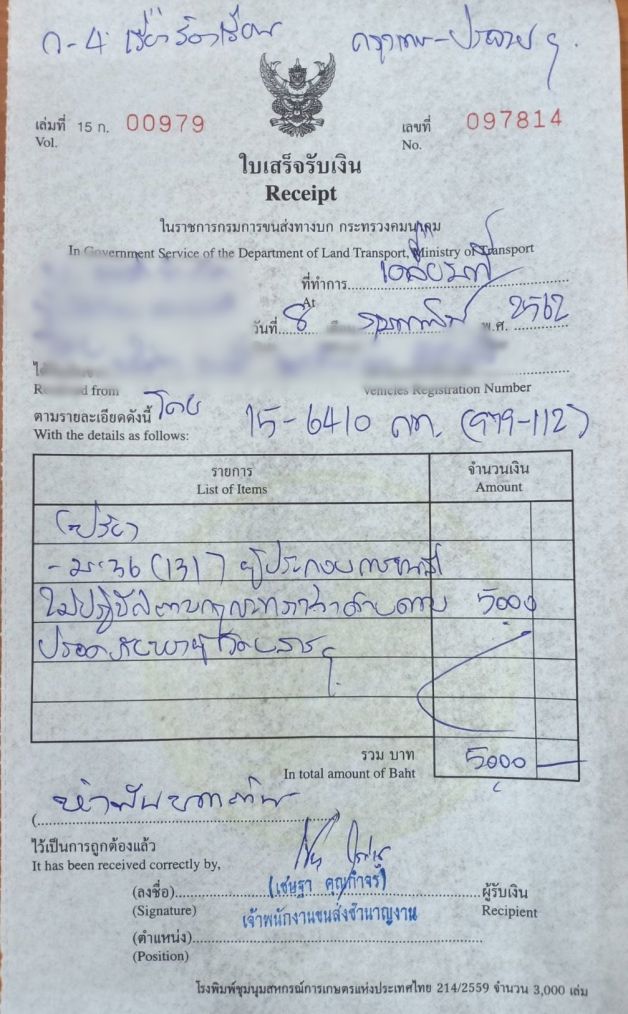 เล่มที่ 15 ก. 00979
Vol.
เลขที่ 097814
No.
ใบเสร็จรับเงิน
Receipt
ในราชการกรมการขนส่งทางบก กระทรวงคมนาคม
In Government Service of the Department of Land Transport, Ministry of Transport
ที่ทำการ
At
วันที่ 8 กุมภาพันธ์ พ.ศ. 2562
Received from
Vehicles Registration Number
ตามรายละเอียดดังนี้ โดย 15-6410 กท. (979-112)
With the details as follows:
รายการ
List of Items
จำนวนเงิน
Amount
(ปรับ)
- ม.36 (131) ผู้ประกอบการขนส่ง
ไม่ปฏิบัติตาม 5000
รวม บาท
In total amount of Baht
5000
(ห้าพันบาทถ้วน)
ไว้เป็นการถูกต้องแล้ว
It has been received correctly by,
(ลงชื่อ) ผู้รับเงิน
(Signature) Recipient
(เชษฐา คุณกำจร)
เจ้าพนักงานขนส่งชำนาญงาน
(ตำแหน่ง)
(Position)
โรงพิมพ์ชุมนุมสหกรณ์การเกษตรแห่งประเทศไทย 214/2559 จำนวน 3,000 เล่ม